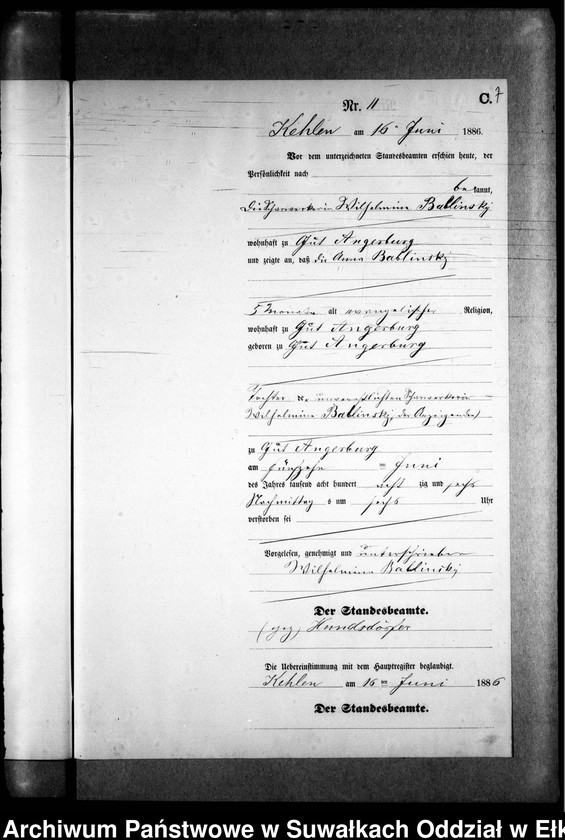 C. 7
Nr. 11
Kehlen am 16 Juni 1886.
Vor dem unterzeichneten Standesbeamten erschien heute, der
Persönlichkeit nach
be kannt,
die Wilhelmine Bablinsky
wohnhaft zu Gut Angerburg
und zeigte an, daß die Anna Bablinsky
5 Monate alt evangelischer Religion,
wohnhaft zu Gut Angerburg
geboren zu Gut Angerburg
Tochter der unverehelichten
Wilhelmine Bablinsky, der Anzeigenden
zu Gut Angerburg
am fünfzehn ten Juni
des Jahres tausend acht hundert acht zig und sechs
Nachmittag s um sechs Uhr
verstorben sei
Vorgelesen, genehmigt und unterschrieben
Wilhelmine Bablinsky
Der Standesbeamte.
(gez) Hundsdörfer
Die Uebereinstimmung mit dem Hauptregister beglaubigt.
Kehlen am 16 ten Juni 1886
Der Standesbeamte.
Archiwum Państwowe w Suwałkach Oddział w Ełk